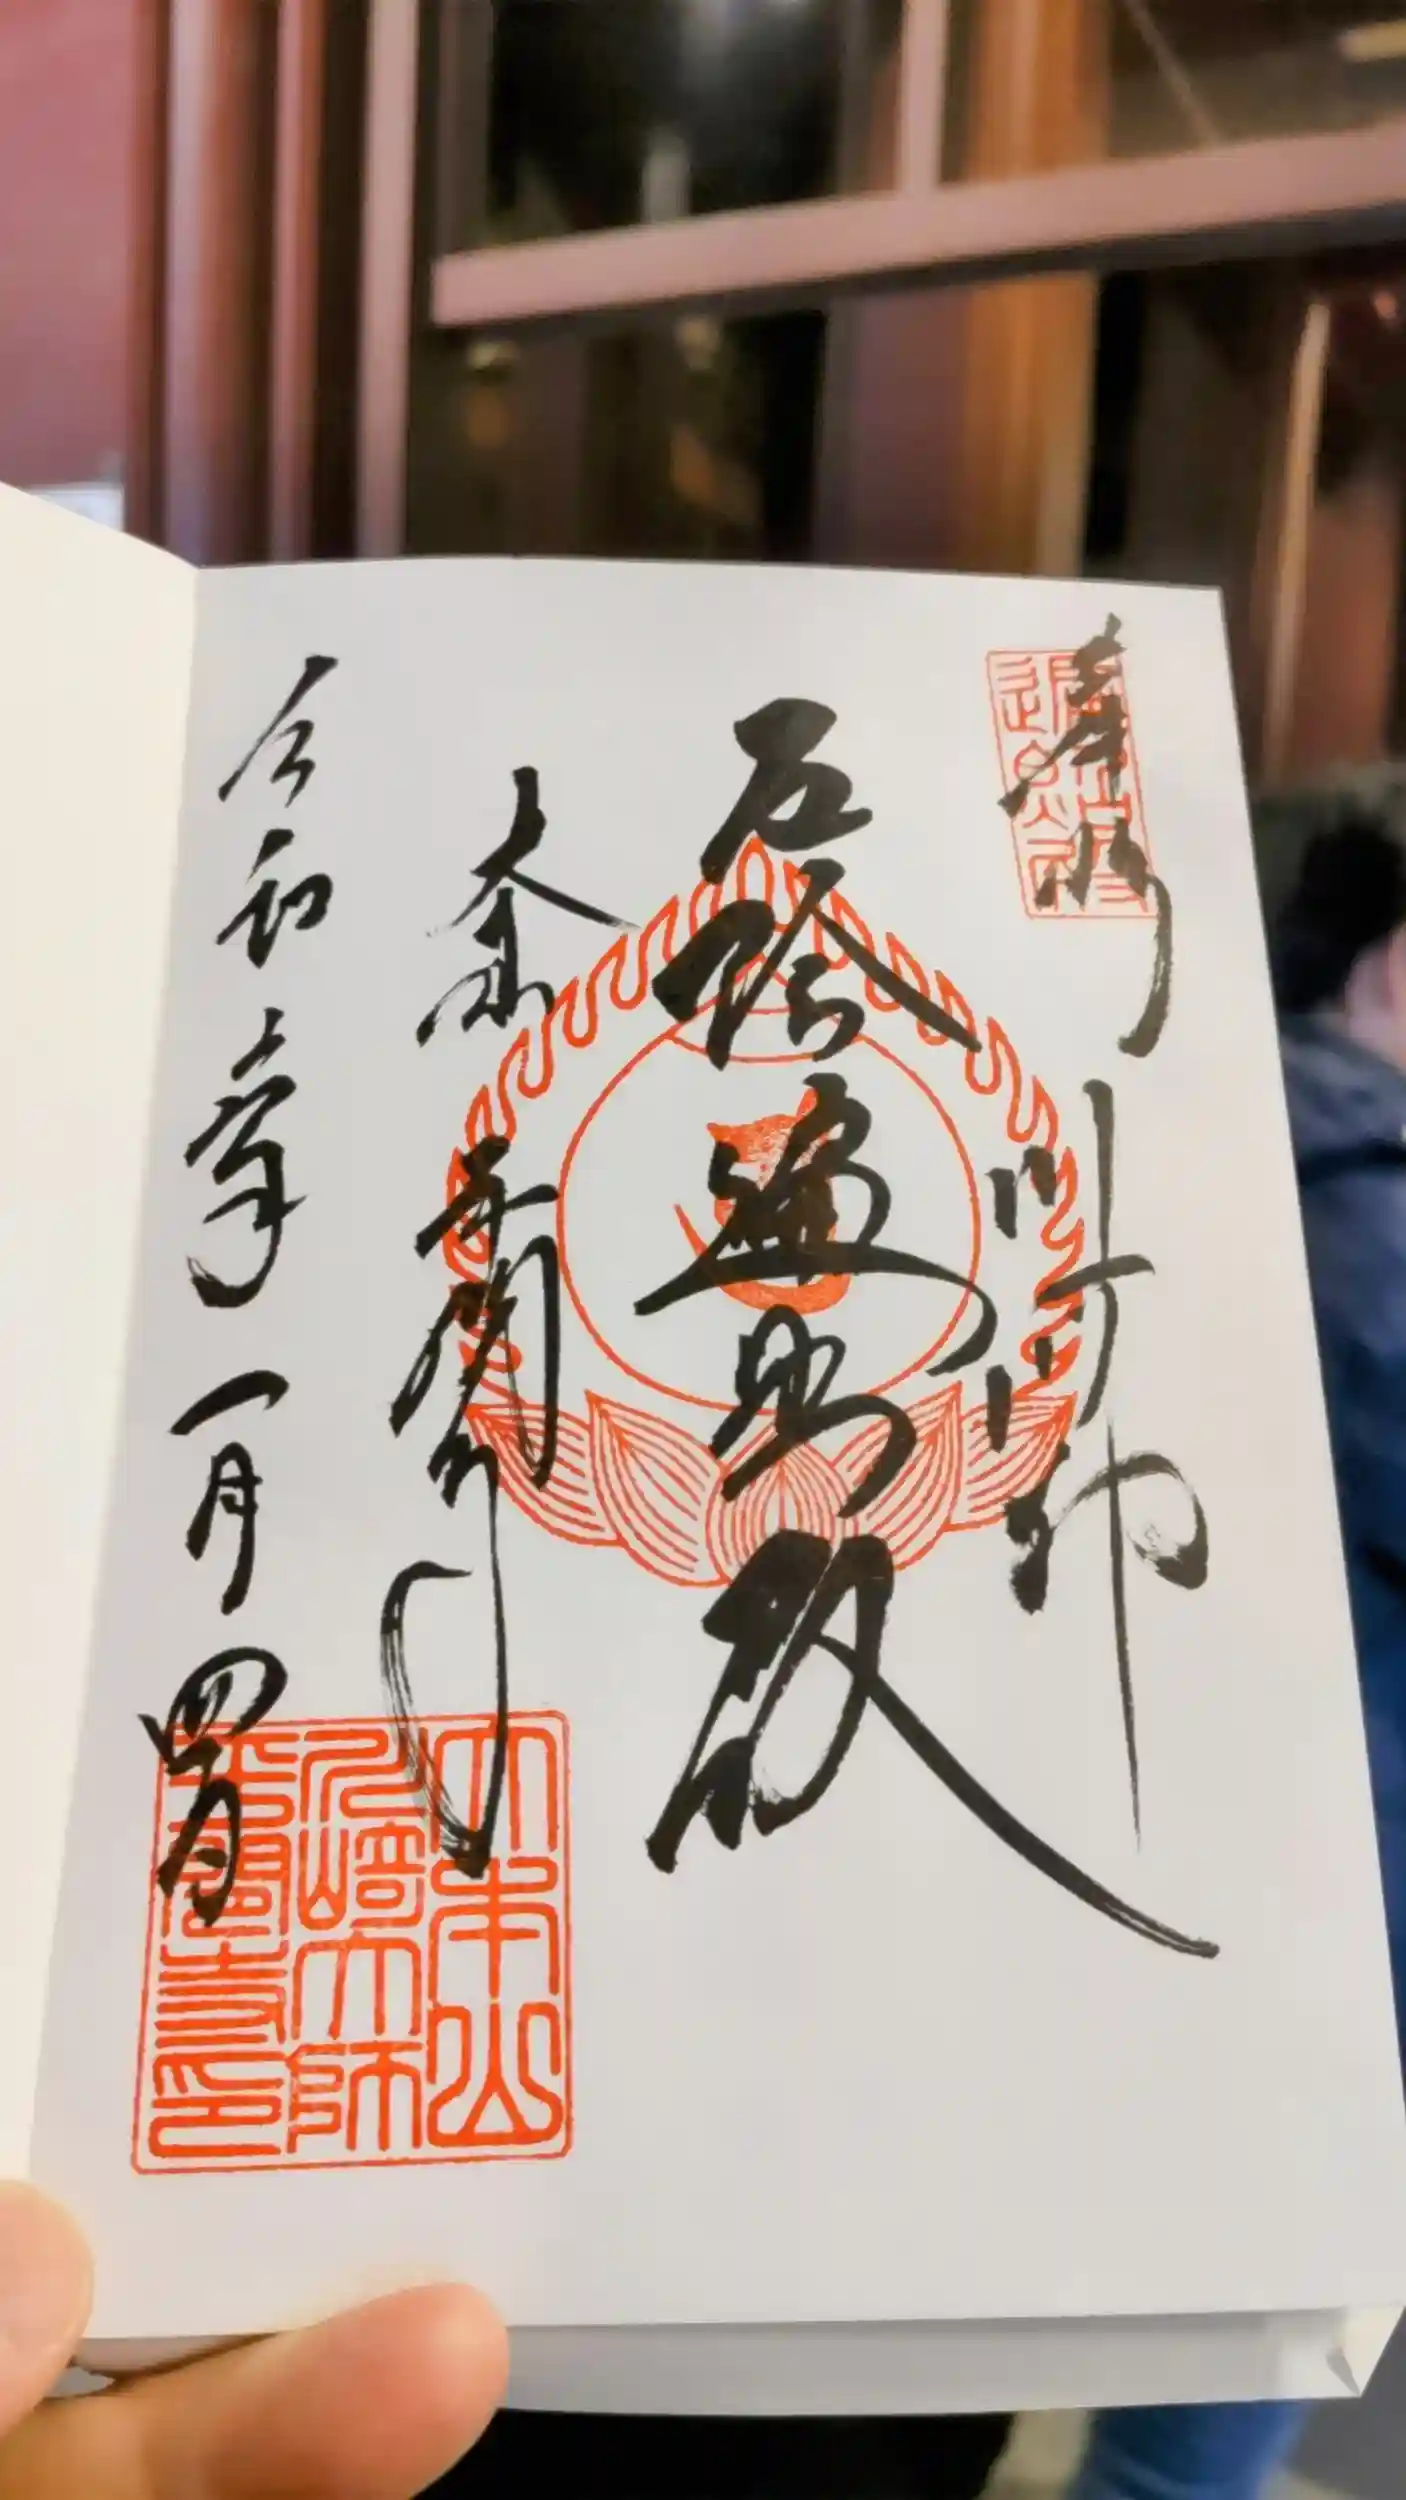 奉拝
川崎大師
厄除遍照殿
大本山
平間寺
令和六年一月四日
大本山
川崎大師
平間寺印